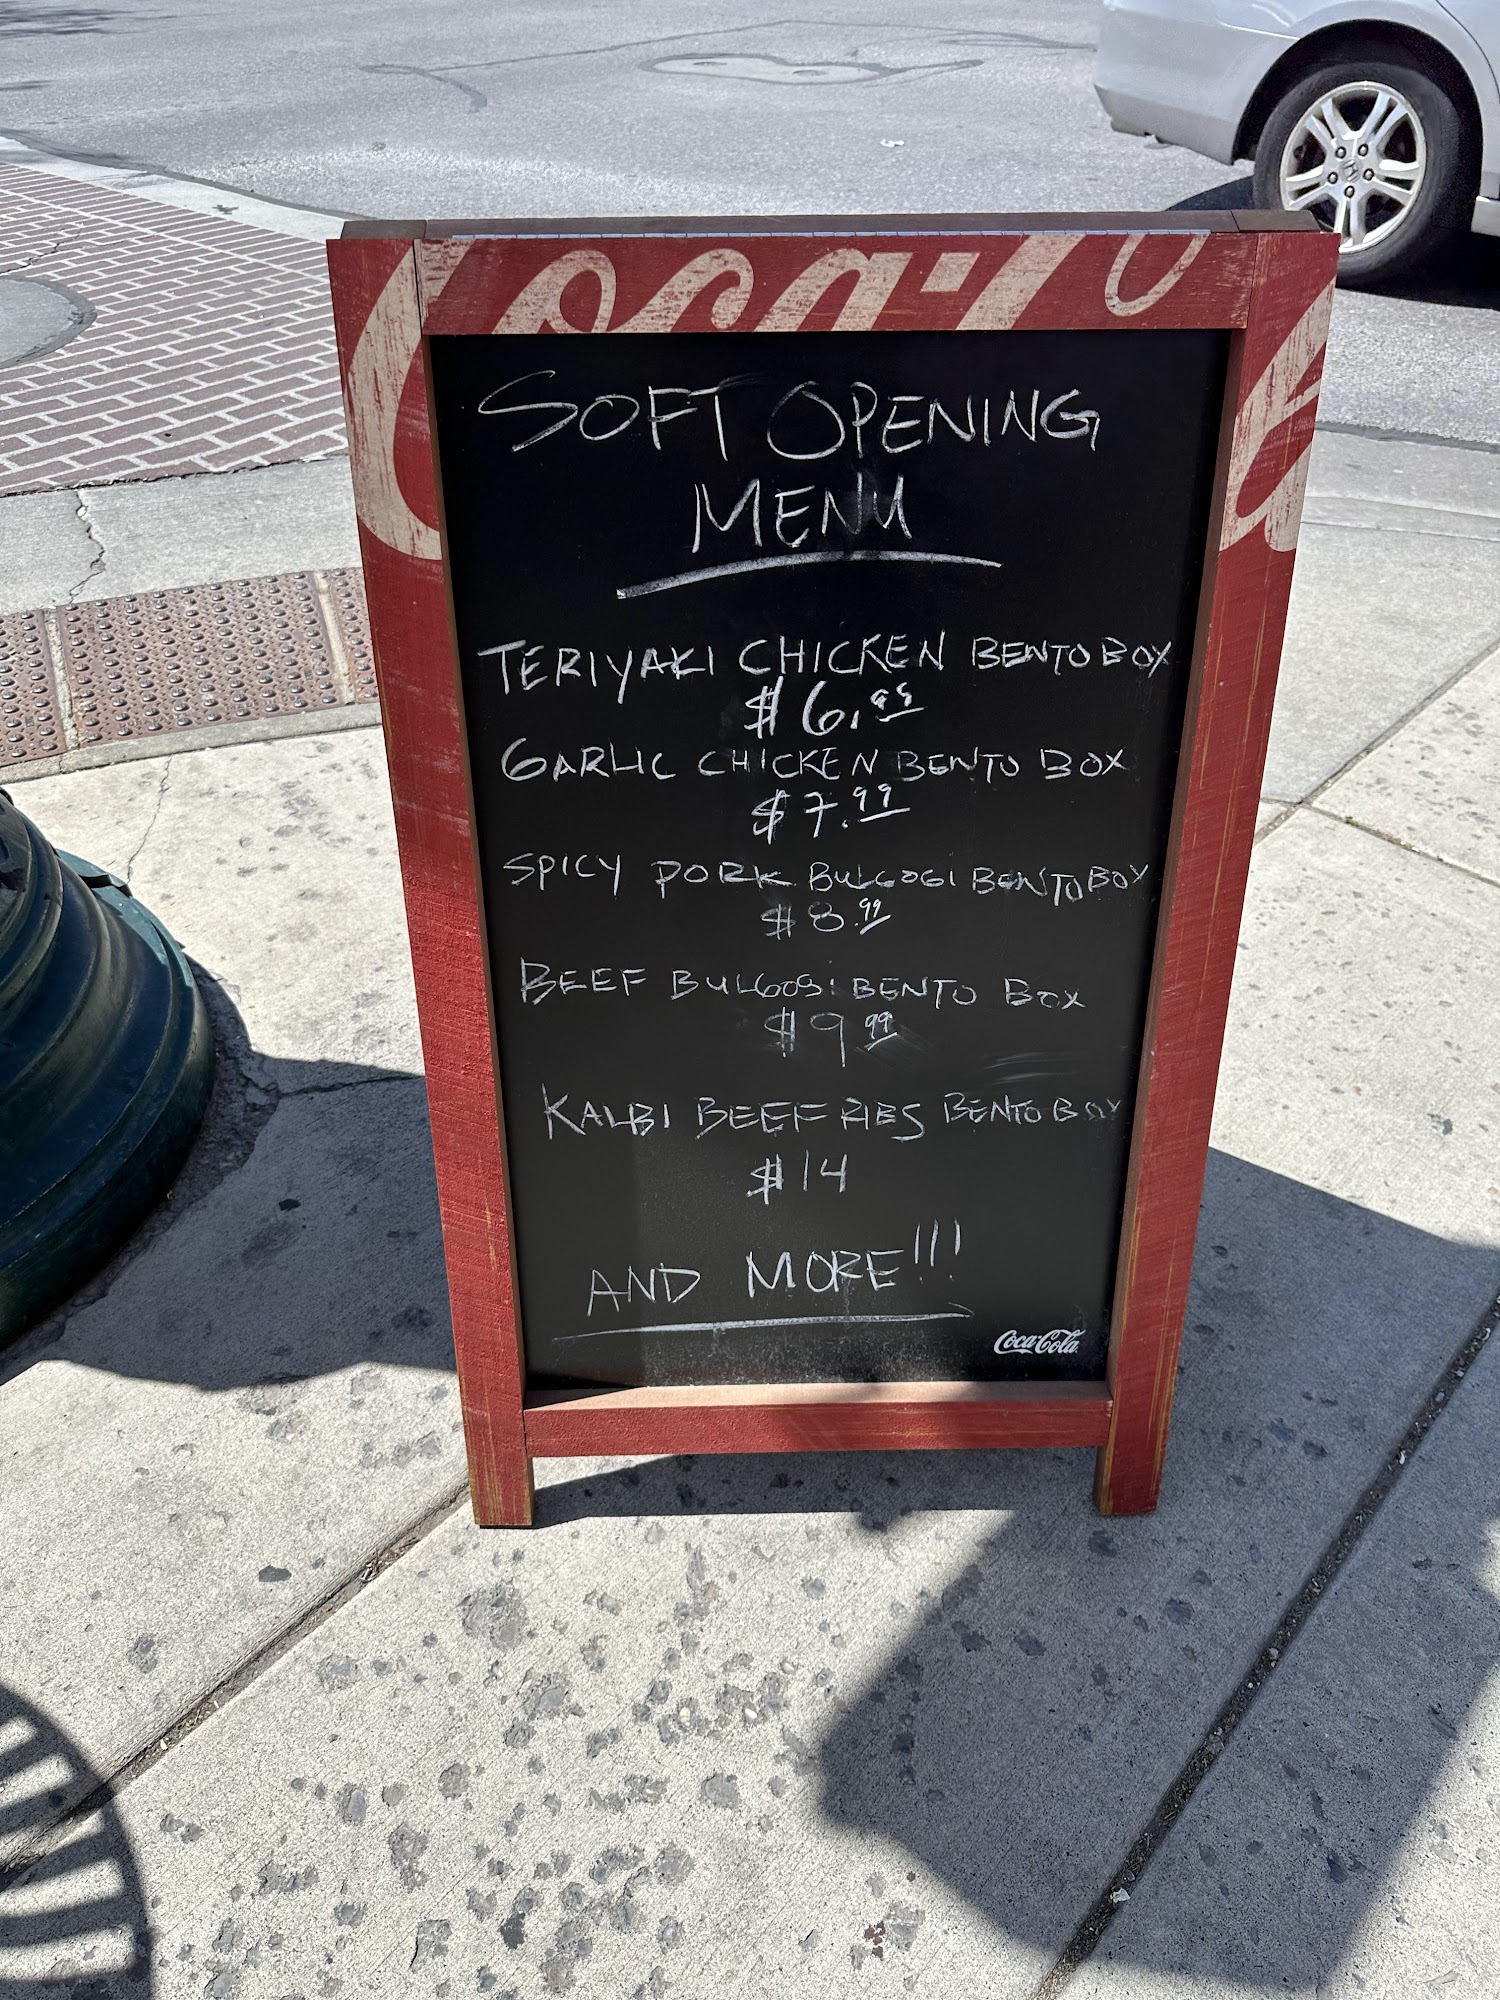 Coca-Cola
SOFT OPENING
MENU
TERIYAKI CHICKEN BENTO BOX
$6.95
GARLIC CHICKEN BENTO BOX
$7.99
SPICY PORK BULGOGI BENTO BOX
$8.99
BEEF BULGOGI BENTO BOX
$9.99
KALBI BEEF RIBS BENTO BOX
$14
AND MORE!!!
Coca-Cola